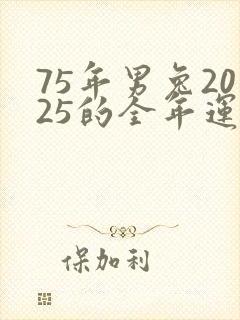 75年男兔20
25的全年運
保加利